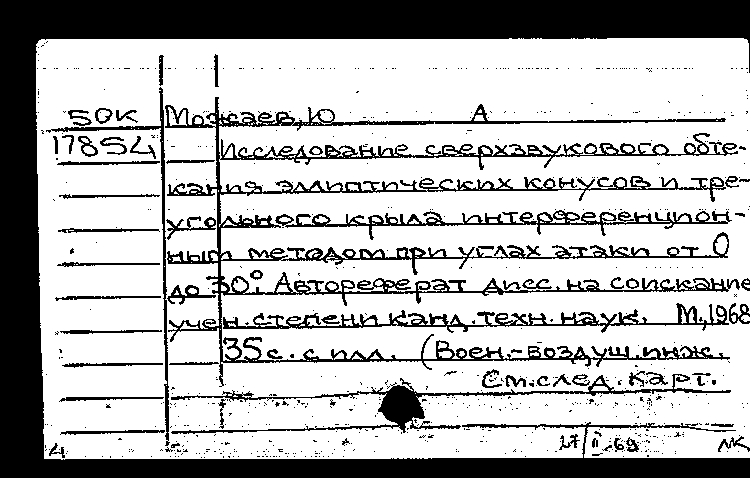 50К Можаев, Ю А
17854 Исследование сверхзвукового обте-
кания эллиптических конусов и тре-
угольного крыла интерференцион-
ным методом при углах атаки от 0
до 30°. Автореферат дисс. на соискание
учен. степени канд. техн. наук. М., 1968
35с. с илл. (Воен.-воздуш. инж.
См. след. карт.
4 27/II-69 МК